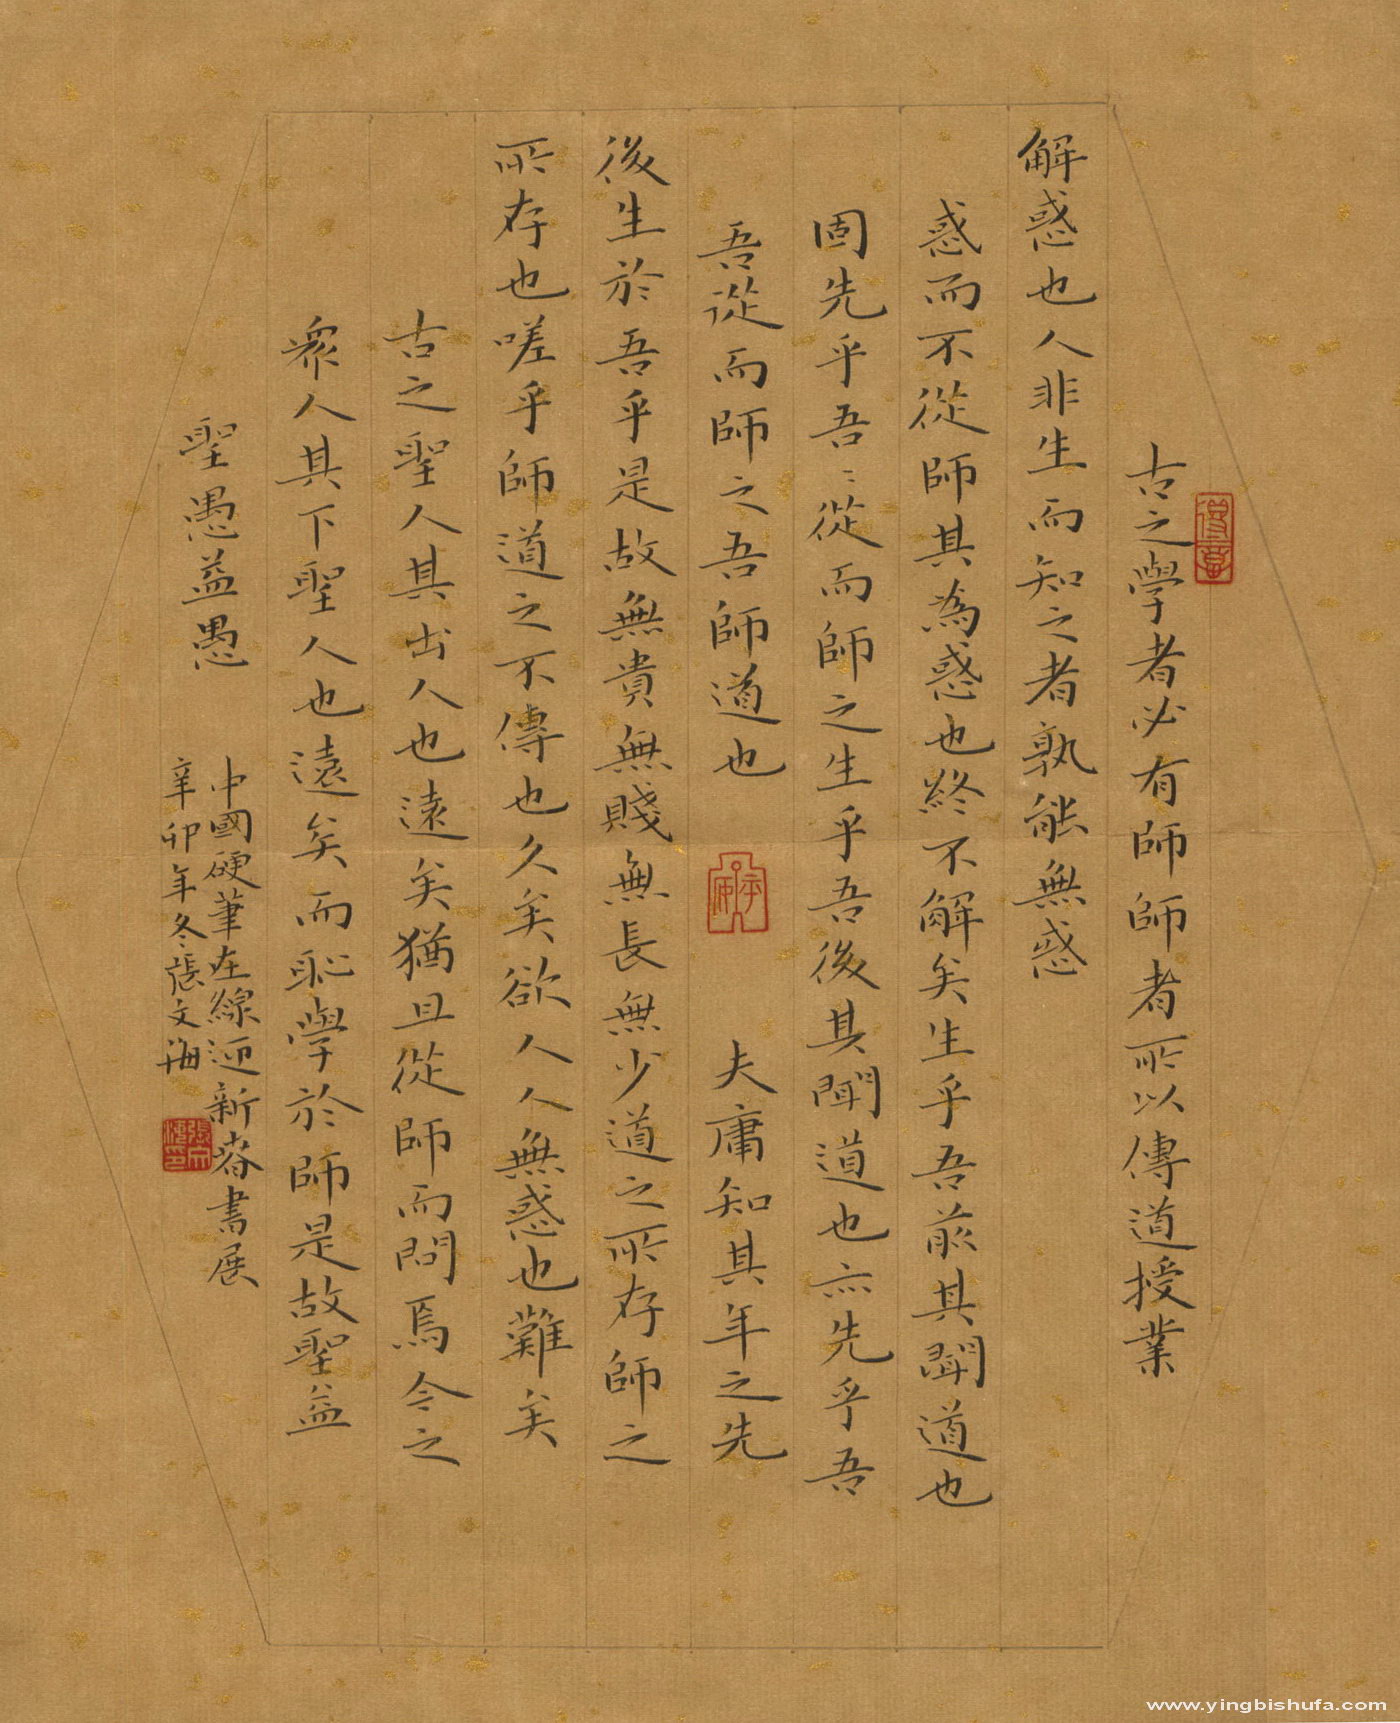 古之學者必有師師者所以傳道授業
解惑也人非生而知之者孰能無惑
惑而不從師其為惑也終不解矣生乎吾前其聞道也
固先乎吾〻從而師之生乎吾後其聞道也亦先乎吾
吾從而師之吾師道也 夫庸知其年之先
後生於吾乎是故無貴無賤無長無少道之所存師之
所存也嗟乎師道之不傳也久矣欲人人無惑也難矣
古之聖人其出人也遠矣猶且從師而問焉今之
衆人其下聖人也遠矣而恥學於師是故聖益
聖愚益愚
中國硬筆在線迎新春書展
辛卯年冬張文海
張文海印
www.yingbishufa.com